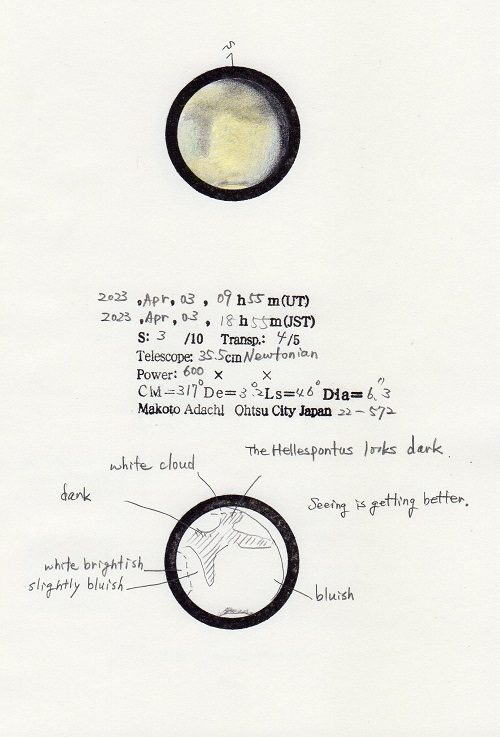 S
2023 , Apr, 03 , 09 h 55 m (UT)
2023 , Apr, 03 , 18 h 55 m (JST)
S: 3 /10 Transp.: 4/5
Telescope: 35.5cm Newtonian
Power: 600 × ×
CM=317° De=3°.2 Ls=46° Dia=6".3
Makoto Adachi Ohtsu City Japan 22-572
The Hellespontus looks dark.
white cloud
dark
Seeing is getting better.
white brightish
slightly bluish
bluish